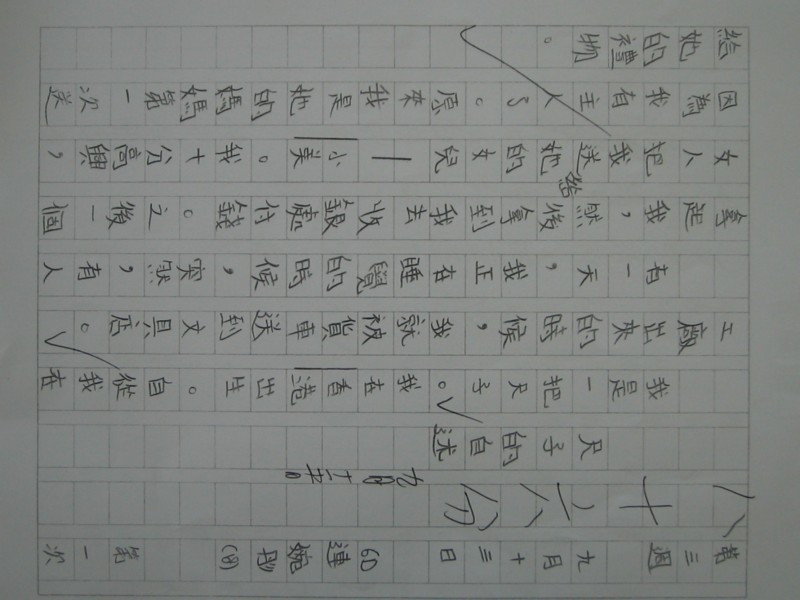 第三週 九月十三日 6D 連婉彤(8) 第一次
八十六分
尺子的自述
我是一把尺子。我在香港出生。自從我在
工廠出來的時候，我就被貨車送到文具店。
有一天，我正在睡覺的時候，突然，有人
拿起我，然後拿到我去收銀處付錢。之後一個
女人把我送給她的女兒—小美。我十分高興，
因為我有主人了。原來我是她的媽媽第一次送
給她的禮物。